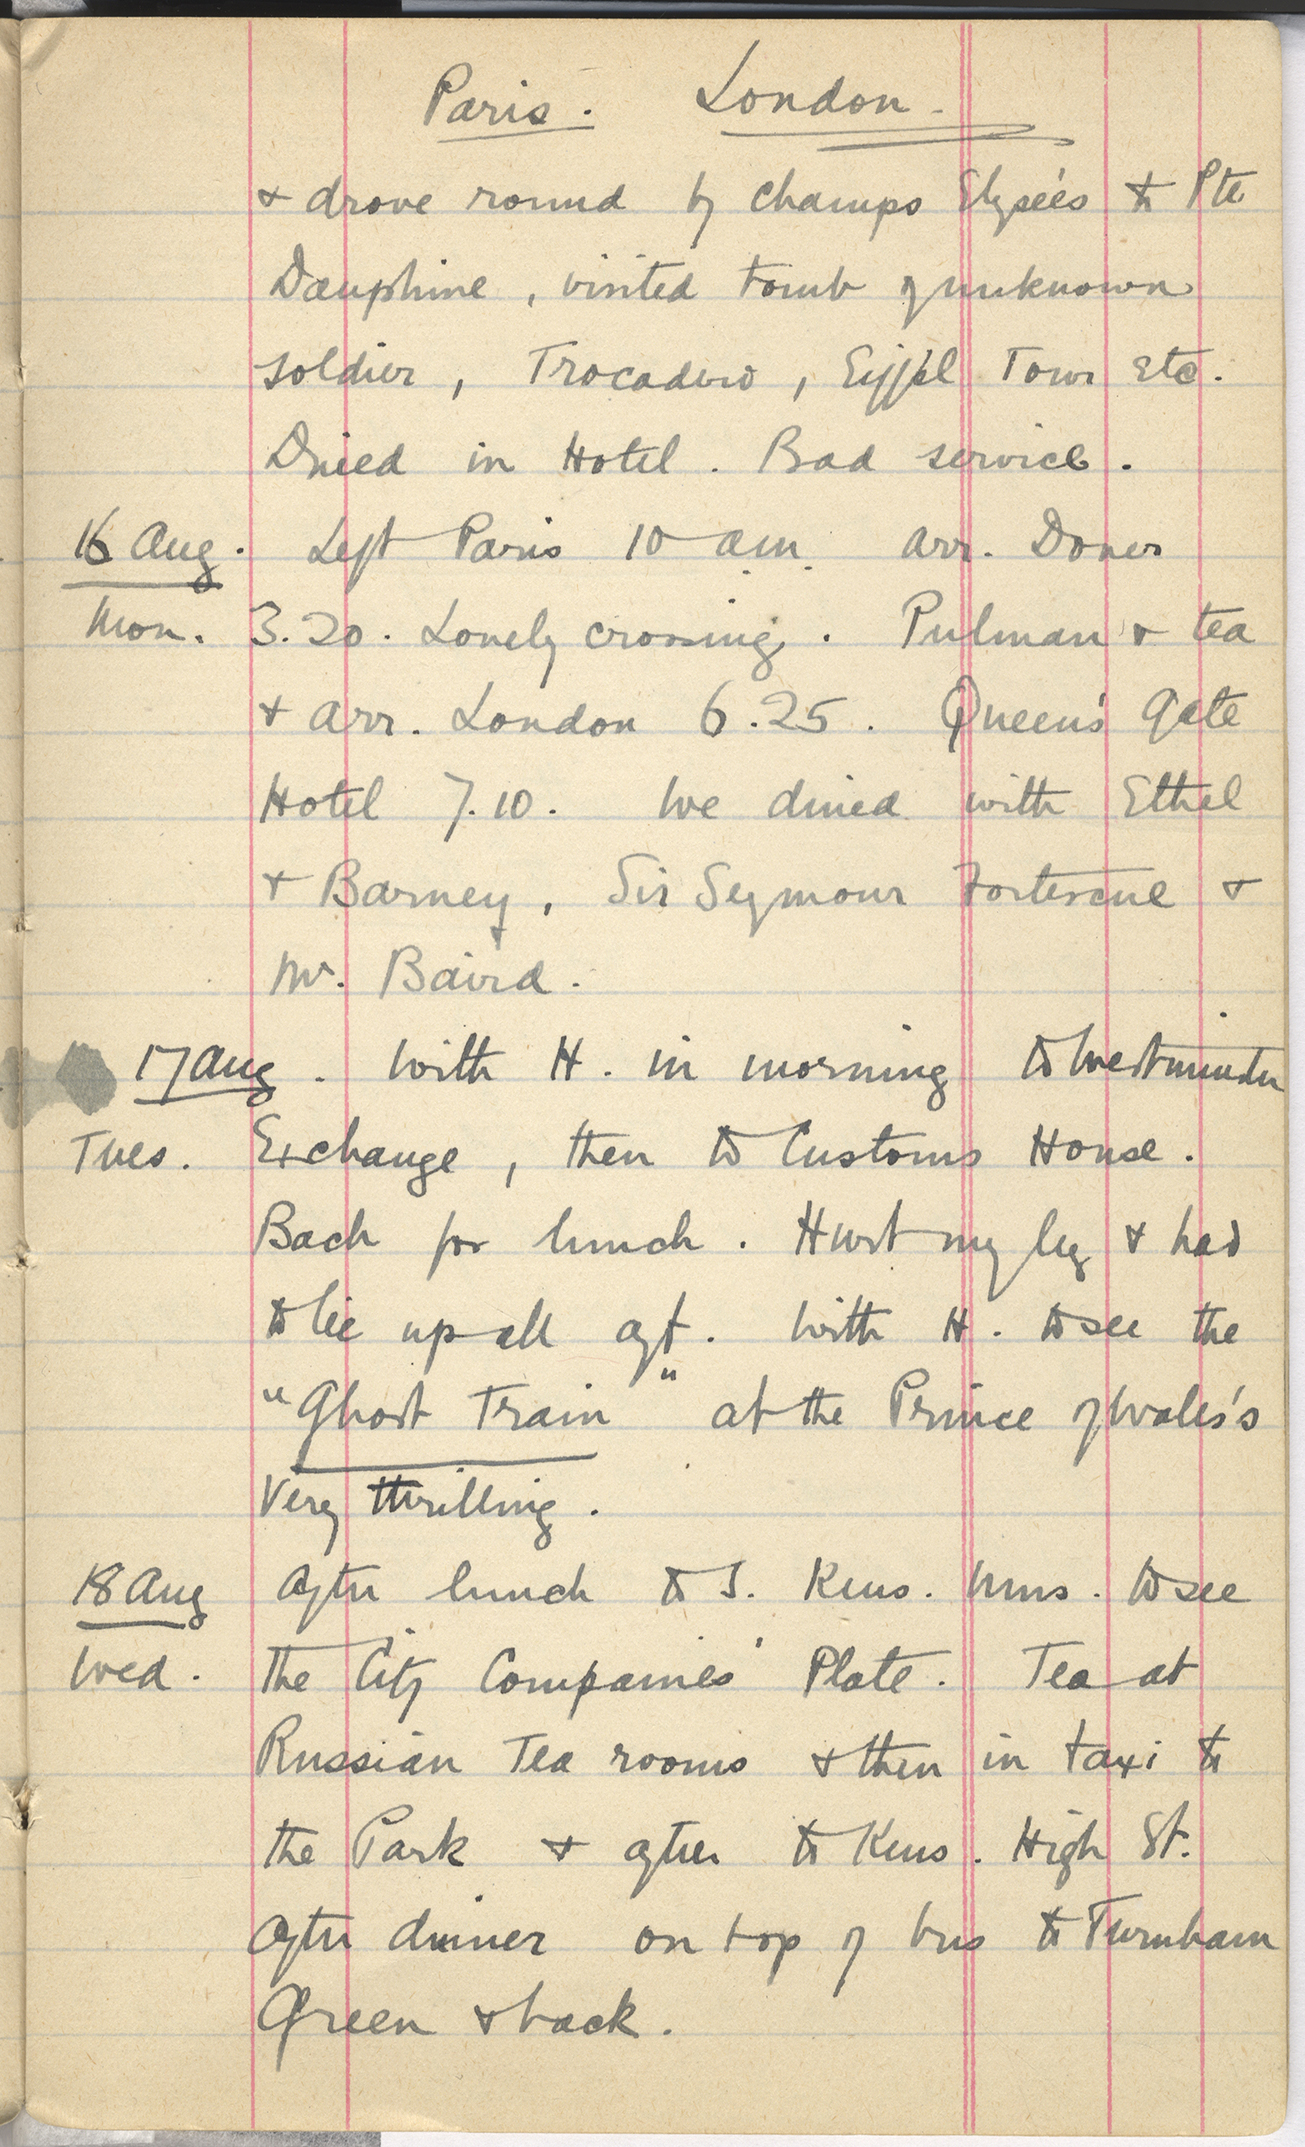 Paris. London.
& drove round by Champs Elyseés to Pte
Dauphine, visited tomb of unknown
soldier, Trocadero, Eiffel Tower etc.
Dined in Hotel. Bad service.
16 Aug. Left Paris 10 am. arr. Dover
Mon. 3.20. Lovely crossing. Pulman & tea
& arr. London 6.25. Queen's Gate
Hotel 7.10. We dined with Ethel
& Barney, Sir Seymour Fortescue &
Mr. Baird.
17 Aug. With H. in morning to Westminster
Tues. Exchange, then to Customs House.
Back for lunch. Hurt my leg & had
to lie up all aft. With H. to see the
"Ghost Train" at the Prince of Wales's
Very thrilling.
18 Aug After lunch to S. Kens. Mus. to see
Wed. the City Companies' Plate. Tea at
Russian Tea rooms & then in taxi to
the Park & after to Kens. High St.
After dinner on top of bus to Turnham
Green & back.